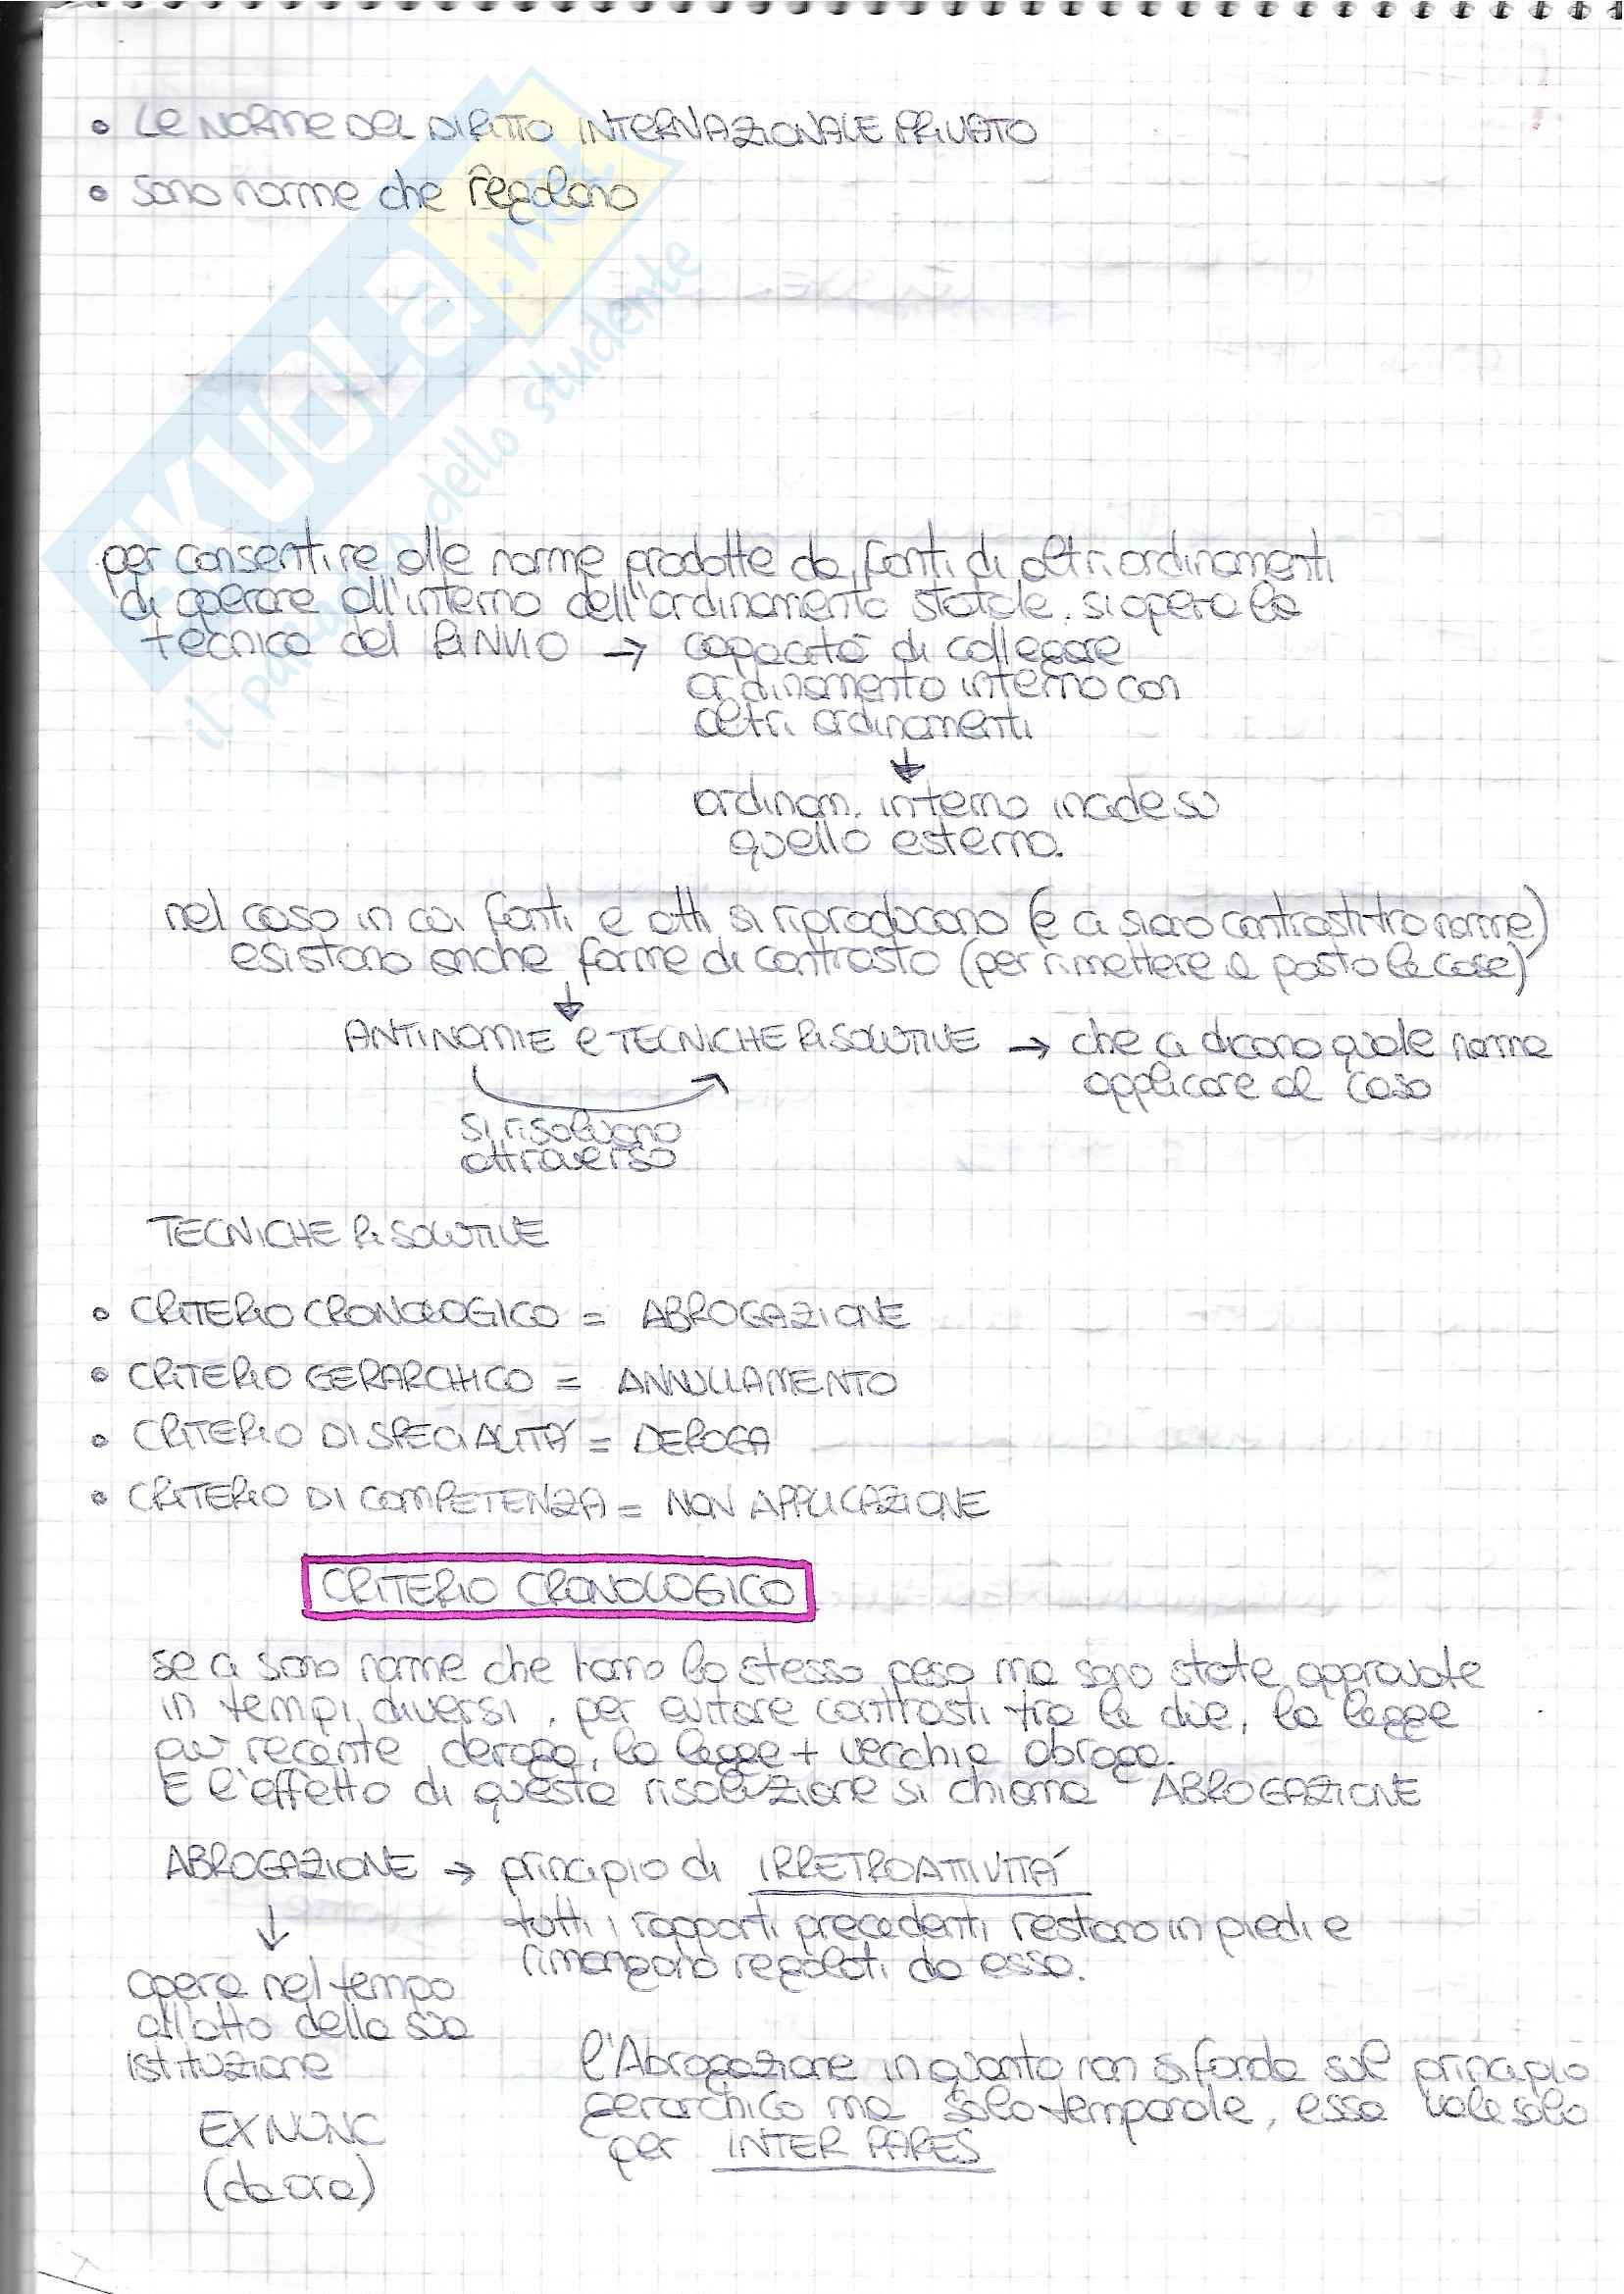 • LE NORME DEL DIRITTO INTERNAZIONALE PRIVATO
• sono norme che regolano
SKUOLA.net
il paradiso dello studente
per consentire alle norme prodotte da fonti di altri ordinamenti
di operare all'interno dell'ordinamento statale. si opera la
tecnica del RINVIO → capacità di collegare
ordinamento interno con
altri ordinamenti
↓
ordinam. interno incide su
quello esterno.
nel caso in cui fonti e atti si riproducano (e ci siano contrasti tra norme)
esistono anche forme di contrasto (per rimettere a posto le cose)
↓
ANTINOMIE e TECNICHE RISOLUTIVE → che ci dicono quale norma
applicare al caso
si risolvono
attraverso
TECNICHE RISOLUTIVE
• CRITERIO CRONOLOGICO = ABROGAZIONE
• CRITERIO GERARCHICO = ANNULLAMENTO
• CRITERIO DI SPECIALITÁ = DEROGA
• CRITERIO DI COMPETENZA = NON APPLICAZIONE
CRITERIO CRONOLOGICO
se ci sono norme che hanno lo stesso peso ma sono state approvate
in tempi diversi, per evitare contrasti tra le due, la legge
più recente deroga, la legge + vecchia abroga.
E l'effetto di questa risoluzione si chiama ABROGAZIONE
ABROGAZIONE → principio di IRRETROATTIVITÁ
↓ tutti i rapporti precedenti restano in piedi e
rimangono regolati da essa.
opera nel tempo
all'atto della sua
istituzione
EX NUNC
(da ora)
l'Abrogazione in quanto non si fonda sul principio
gerarchico ma solo temporale, essa vale solo
per INTER PARES